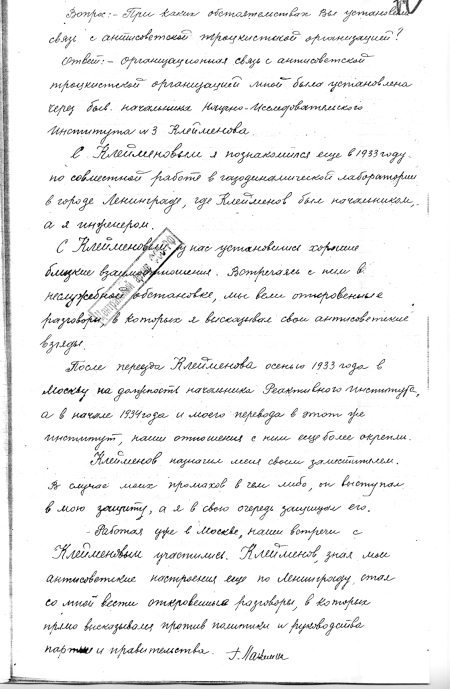 Вопрос:- При каких обстоятельствах Вы установили
связь с антисоветской троцкистской организацией?
Ответ:- Организационная связь с антисоветской
троцкистской организацией мной была установлена
через быв. начальника Научно-Исследовательского
Института №3 Клейменова.
С Клейменовым я познакомился еще в 1933 году.
по совместной работе в газодинамической лаборатории
в городе Ленинграде, где Клейменов был начальником,
а я инженером.
С Клейменовым у нас установились хорошие
близкие взаимоотношения. Встречаясь с ним в
неслужебной обстановке, мы вели откровенные
разговоры в которых я высказывал свои антисоветские
взгляды.
После переезда Клейменова осенью 1933 года в
Москву на должность начальника Реактивного института,
а в начале 1934 года и моего перевода в этот же
институт, наши отношения с ним еще более окрепли.
Клейменов назначил меня своим заместителем.
В случае моих промахов в чем либо, он выступал
в мою защиту, а я в свою очередь защищал его.
- Работая уже в Москве, наши встречи с
Клейменовым участились. Клейменов, зная мои
антисоветские настроения еще по Ленинграду, стал
со мной вести откровенные разговоры, в которых
прямо высказывался против политики и руководства
партии и правительства.